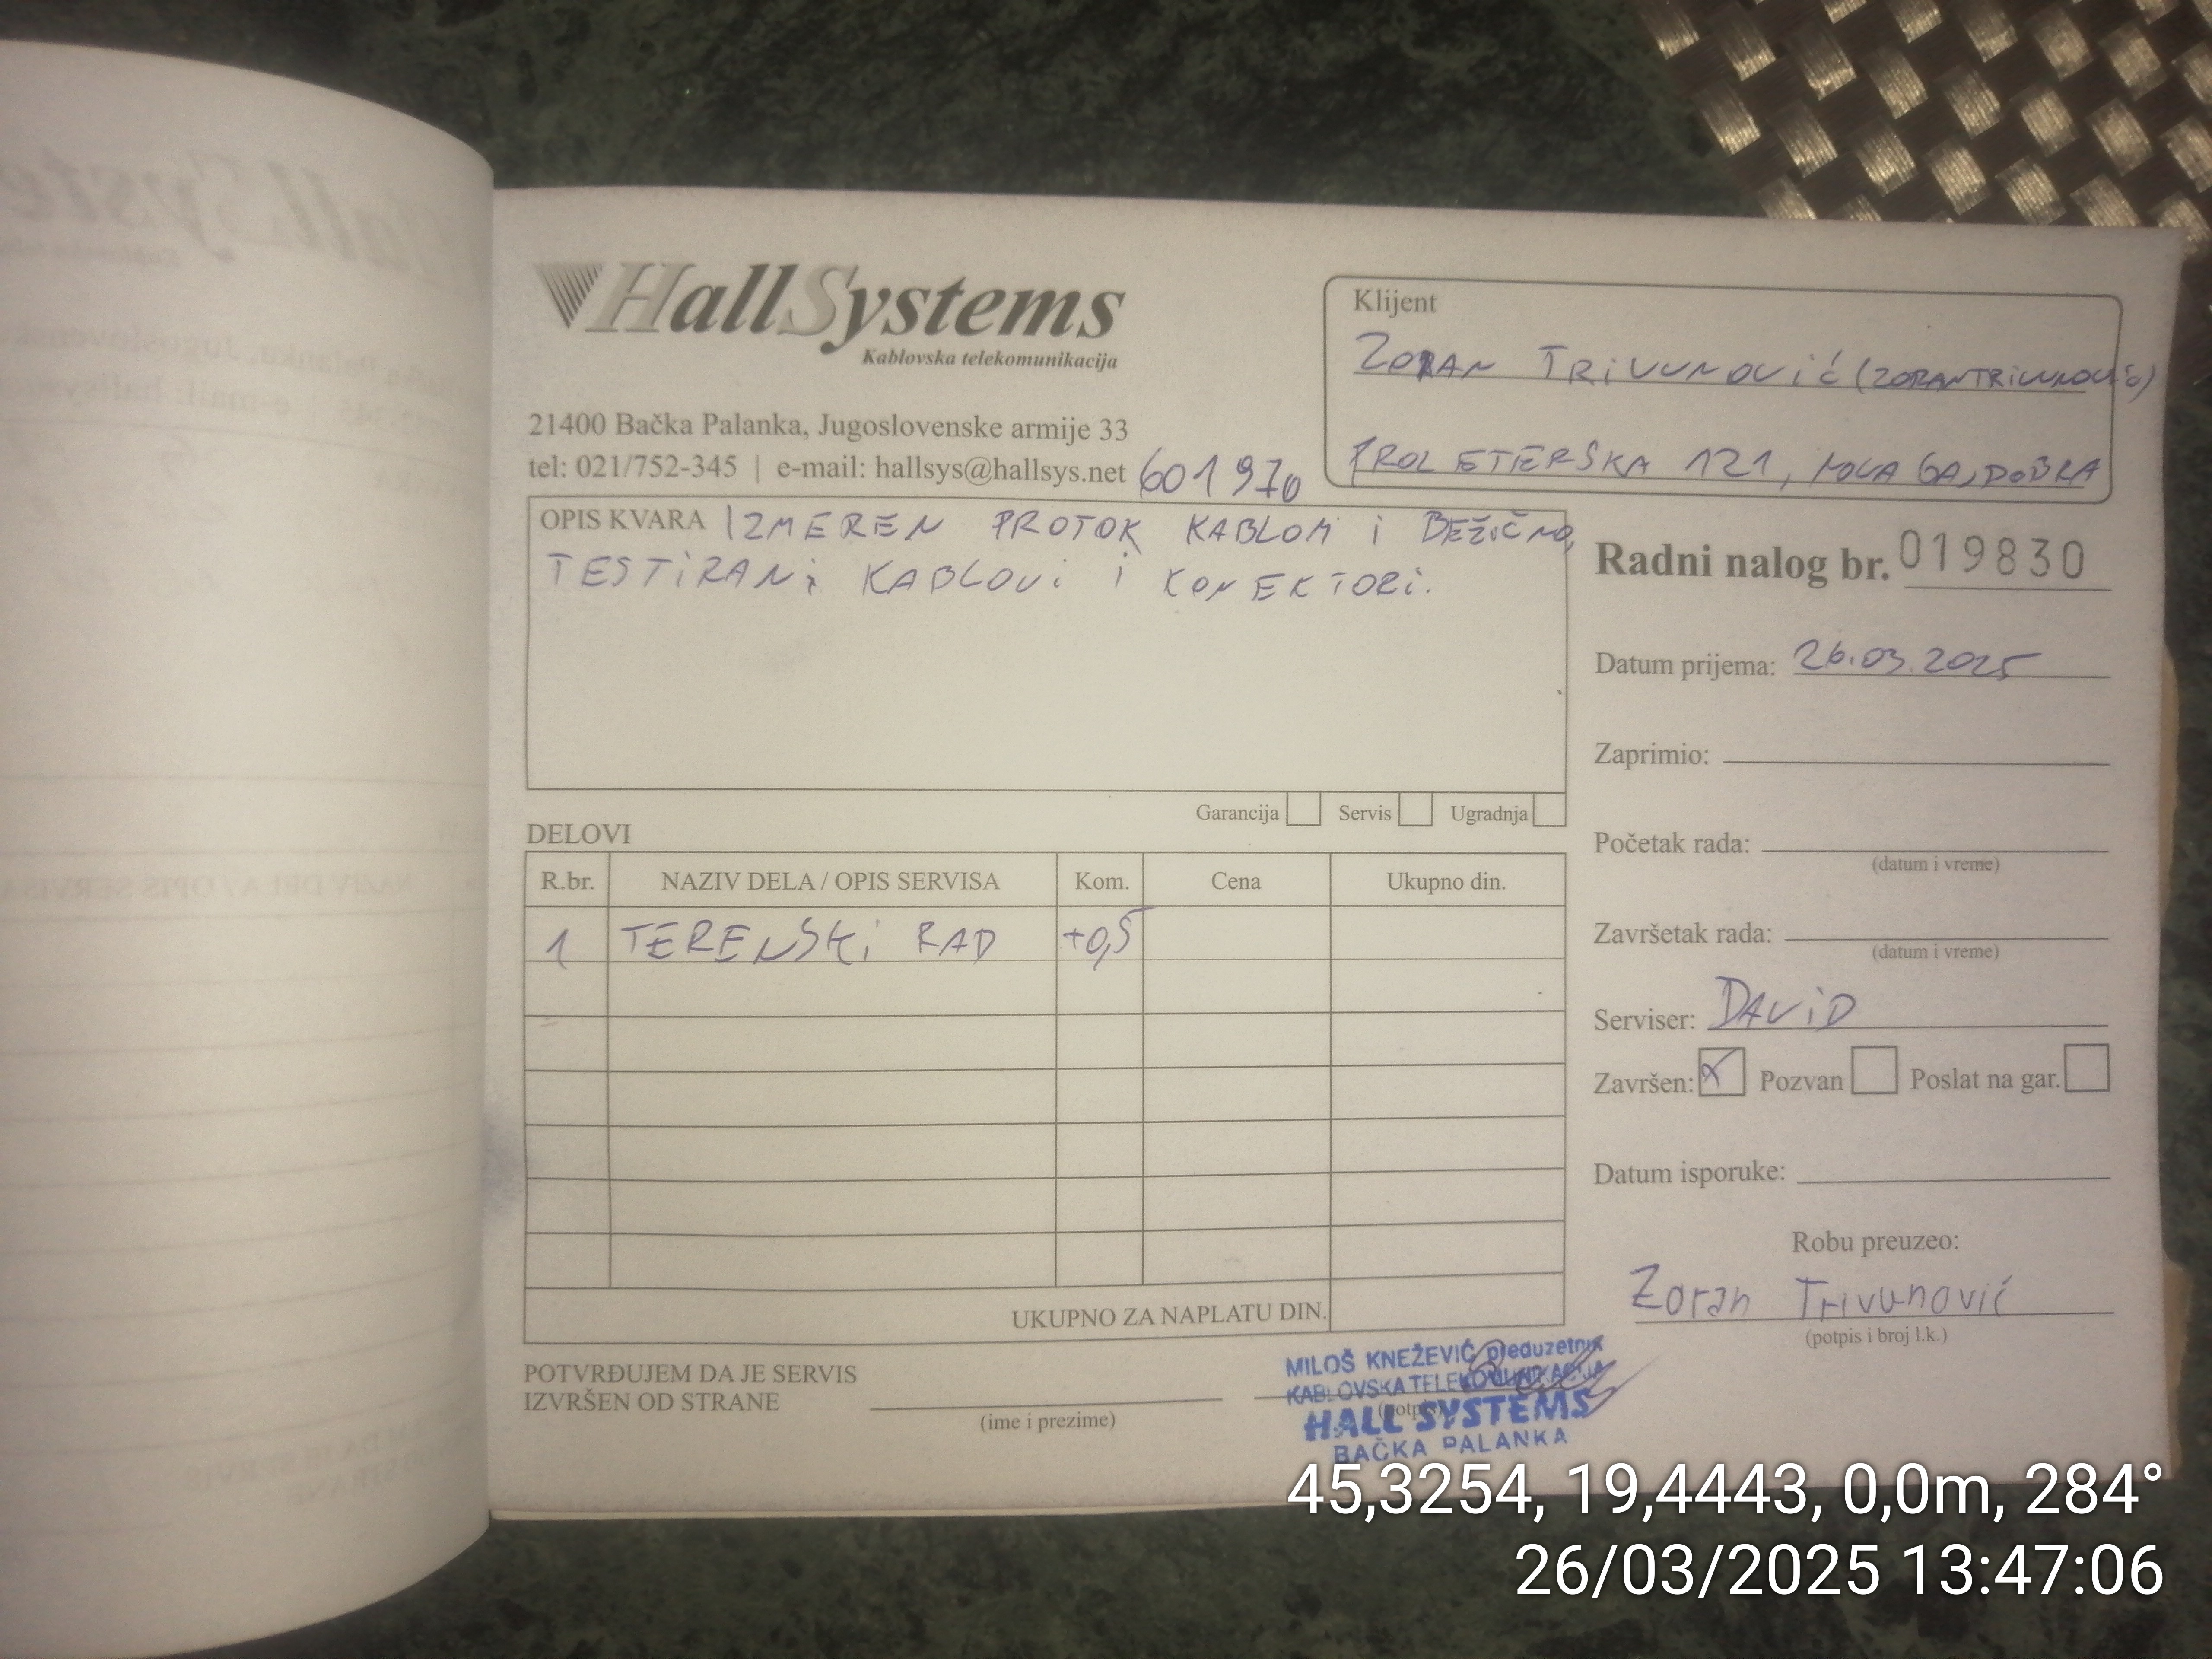 HallSystems
Kablovska telekomunikacija
21400 Bačka Palanka, Jugoslovenske armije 33
tel: 021/752-345 | e-mail: hallsys@hallsys.net
601970
Klijent
ZORAN TRIVUNOVIĆ (ZORANTRIVUNOVIĆ)
PROLETERSKA 121, NOVA GAJDOBRA
OPIS KVARA IZMEREN PROTOK KABLOM I BEŽIČNO,
TESTIRANI KABLOVI I KONEKTORI.
Garancija Servis Ugradnja
Radni nalog br. 019830
Datum prijema: 26.03.2025
Zaprimio:
Početak rada:
(datum i vreme)
Završetak rada:
(datum i vreme)
Serviser: DAVID
Završen: X Pozvan Poslat na gar.
Datum isporuke:
Robu preuzeo:
Zoran Trivunović
(potpis i broj l.k.)
DELOVI
R.br. NAZIV DELA / OPIS SERVISA Kom. Cena Ukupno din.
1 TERENSKI RAD +0,5
UKUPNO ZA NAPLATU DIN.
POTVRĐUJEM DA JE SERVIS
IZVRŠEN OD STRANE
(ime i prezime)
(potpis)
MILOŠ KNEŽEVIĆ preduzetnik
KABLOVSKA TELEKOMUNIKACIJA
HALL SYSTEMS
BAČKA PALANKA
45,3254, 19,4443, 0,0m, 284°
26/03/2025 13:47:06